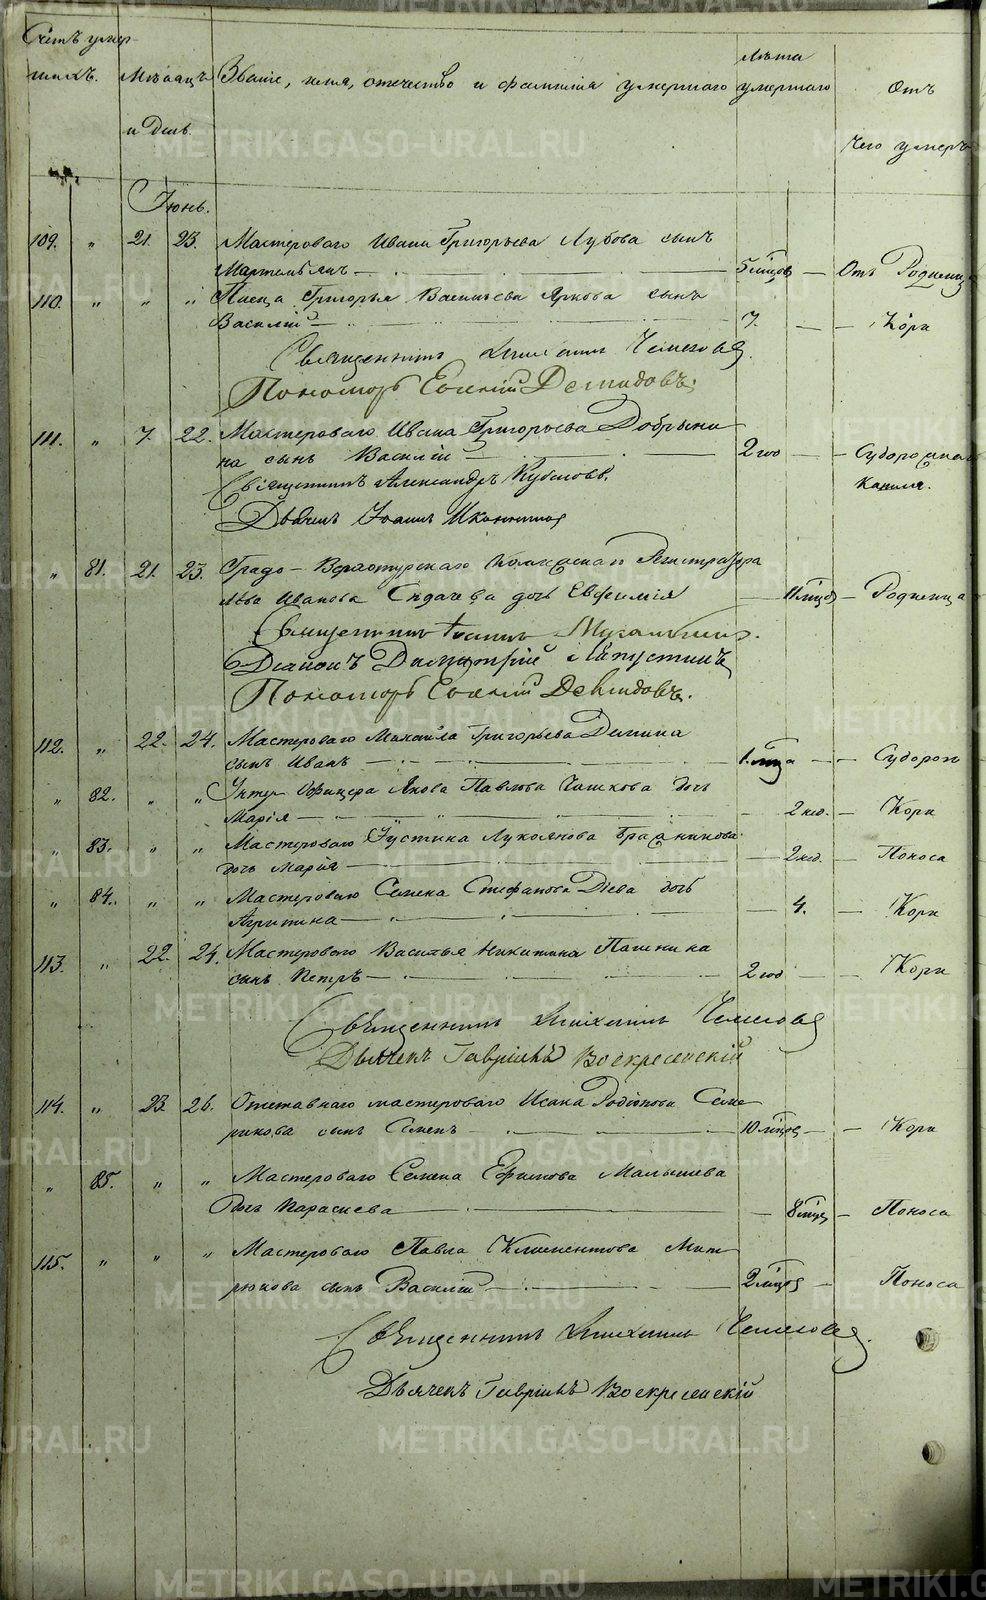 Счетъ умер-
шихъ. Мѣсяцъ Званіе, имя, отечество и фамилія умершаго
и День.
Лѣта умершаго
Отъ чего умеръ
Іюнь.
109. " 21. 23. Мастероваго Ивана Григорьева Лубова сынъ
5 мѣцов — Отъ Родимица
110. " " " Писца Григорья Васильева Яркова сынъ
Василій — 7. — Кори
Священникъ Чемесовъ
Пономарь Евгеній Демидовъ.
111. " 7. 22. Мастероваго Ивана Григорьева Добрыни
на сынъ Василій — 2 год — Судорожнаго
Священникъ Александръ Кубасовъ. кашля.
Дьячекъ Іоаннъ Иконниковъ
" 81. 21. 23. Градо-Верхотурскаго Регистратора
Льва Иванова дочь Евфимія — 11 мѣцов — Родимица
Священникъ Іоаннъ
Діаконъ Димитрій Ляпустинъ
Пономарь Евгеній Демидовъ.
112. " 22. 24. Мастероваго Михаила Григорьева Демина
сынъ Иванъ — 1. мца — Судорог
" 82. " " Унтер Офицера Якова Павлова Чашкова дочь
Марія — 2 год. — Кори
" 83. " " Мастероваго Густина Лукоянова
дочь Марія — 2 год. — Поноса
" 84. " " Мастероваго Семена Стефанова Діева дочь
Агрипина — 4. — Кори
113. " 22. 24. Мастероваго Василья Никитина Пашнина
сынъ Петръ — 2 год — Кори
Священникъ Чемесовъ
Дьячекъ Гавріилъ Воскресенскій
114. " 23. 26. Отставнаго мастероваго Исака Родіонова Семе
рикова сынъ Семенъ — 10 мѣцов — Кори
" 85. " " Мастероваго Семена Ефимова Малышева
Дочь Парасиева — 8 мѣцов — Поноса
115. " " " Мастероваго Павла Климентова Мит
рюкова сынъ Василій — 2 мѣцов — Поноса
Священникъ Чемесовъ
Дьячекъ Гавріилъ Воскресенскій
METRIKI.GASO-URAL.RU